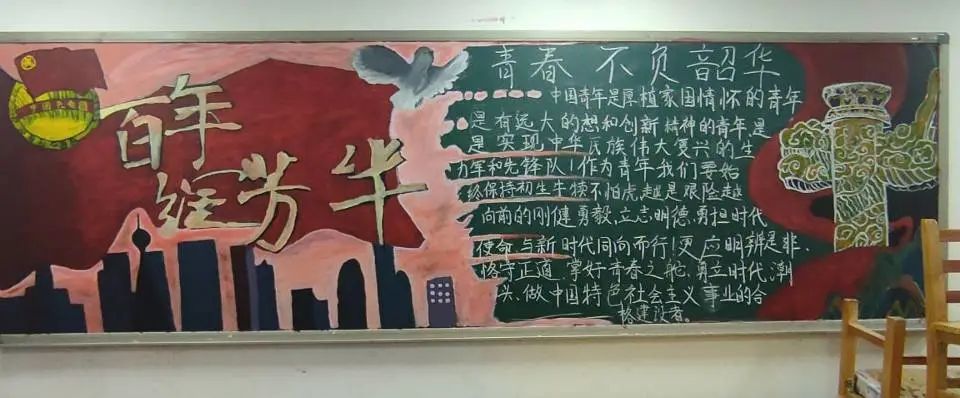 中国共青团
百年
绽芳华
青春不负韶华
中国青年是厚植家国情怀的青年
是有远大的想和创新精神的青年,是
是实现中华民族伟大复兴的生
力军和先锋队!作为青年我们要始
终保持初生牛犊不怕虎,越是艰险越
向前的刚健勇毅,立志明德,勇担时代
使命,与新时代同向而行!更应明辨是非,
恪守正道,掌好青春之舵,勇立时代潮
头、做中国特色社会主义事业的合
格建设者。